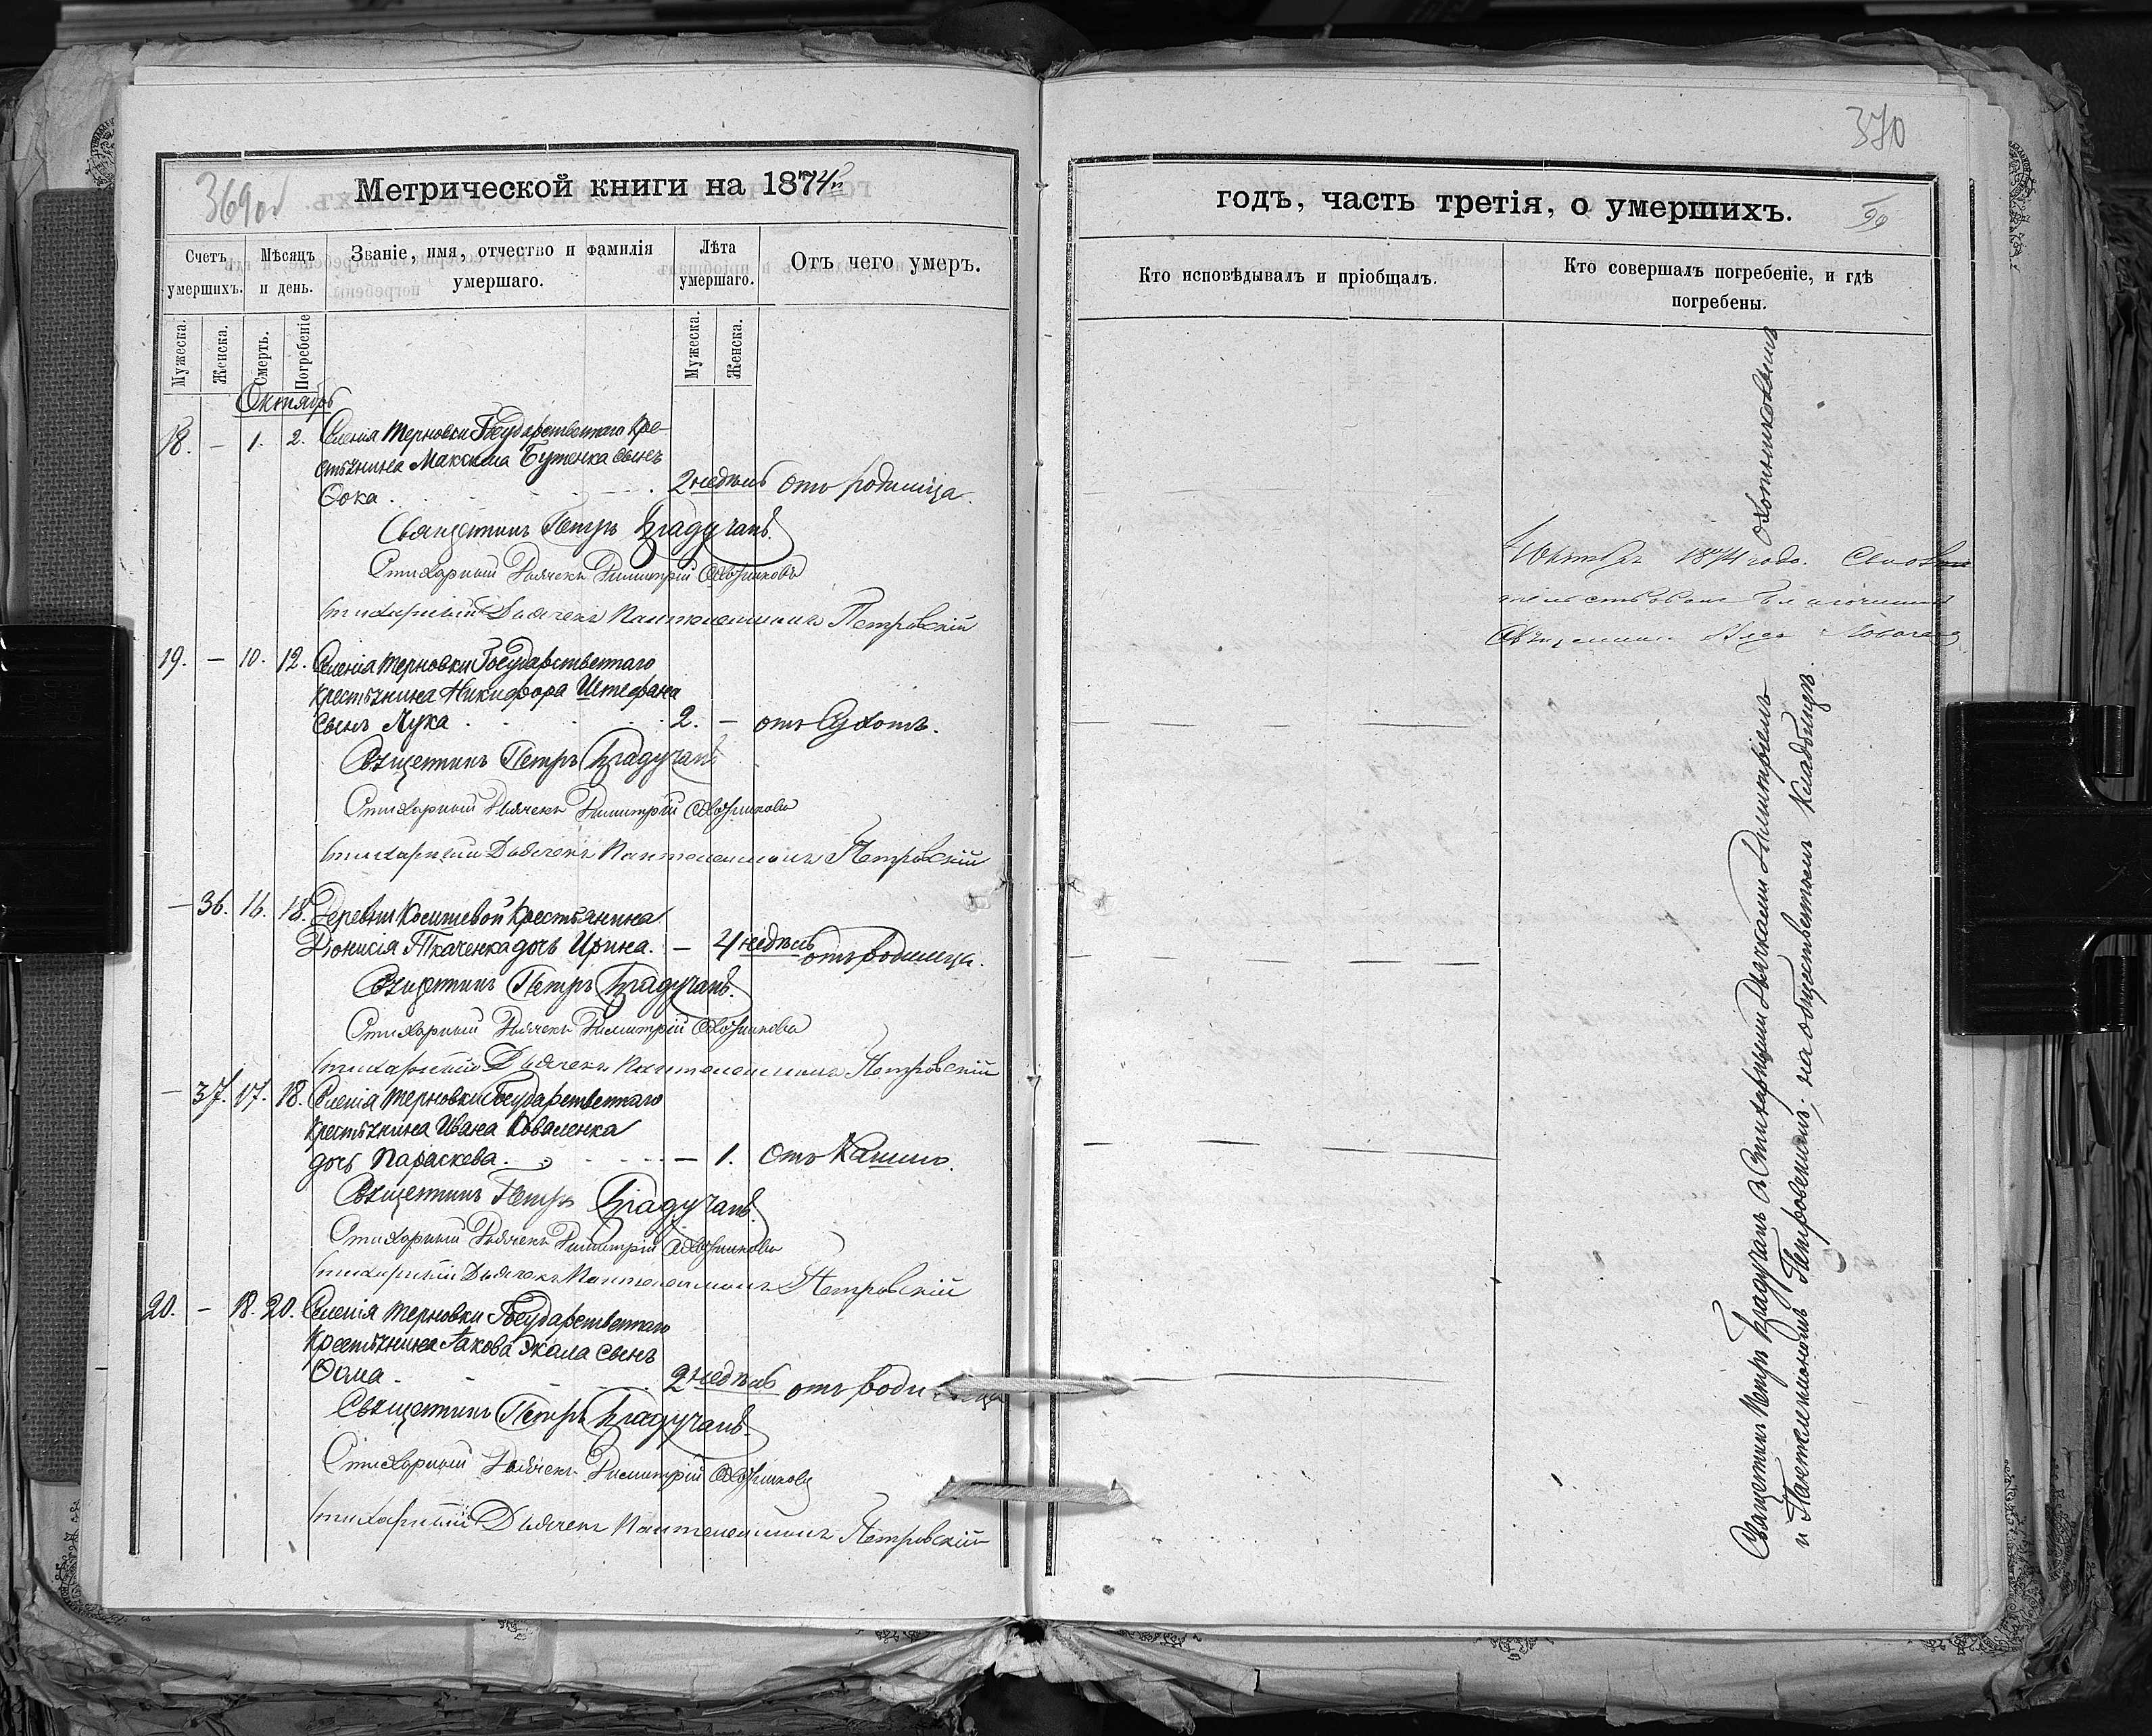 369об
Метрической книги на 1874й
Счетъ умершихъ.
Мѣсяцъ и день.
Званіе, имя, отчество и фамилія умершаго.
Лѣта умершаго.
Отъ чего умеръ.
Мужеска.
Женска.
Смерть.
Погребеніе
Мужеска.
Женска.
Октябрь
18. – 1. 2. Селенія Терновки Государственнаго кре-
стьянина Максима Бутенка сынъ
Ѳока . 2 недѣль отъ родимца.
Священникъ Петръ Брадучанъ.
Стихарный Дьячекъ Димитрій Охотниковъ
Стихарный Дьячекъ Пантелеимонъ Петровскій
19. – 10. 12. Селенія Терновки Государственнаго
крестьянина Никифора Штефана
сынъ Лука . 2. – отъ Сухотъ.
Священникъ Петръ Брадучанъ
Стихарный Дьячекъ Димитрій Охотниковъ
Стихарный Дьячекъ Пантелеимонъ Петровскій
– 36. 16. 18. Деревни крестьянина
Діонисія Ткаченка дочь Ирина. – 4 недѣль отъ родимца.
Священникъ Петръ Брадучанъ.
Стихарный Дьячекъ Димитрій Охотниковъ
Стихарный Дьячекъ Пантелеимонъ Петровскій
– 37. 17. 18. Селенія Терновки Государственнаго
крестьянина Ивана Коваленка
дочь Параскева. – 1. Отъ Кашлю.
Священникъ Петръ Брадучанъ.
Стихарный Дьячекъ Димитрій Охотниковъ
Стихарный Дьячекъ Пантелеимонъ Петровскій
20. – 18. 20. Селенія Терновки Государственнаго
Крестьянина Іакова сынъ
Ѳома . 2 недѣль отъ родимца
Священникъ Петръ Брадучанъ.
Стихарный Дьячекъ Димитрій Охотниковъ
Стихарный Дьячекъ Пантелеимонъ Петровскій
370
годъ, часть третія, о умершихъ.
Кто исповѣдывалъ и пріобщалъ.
Кто совершалъ погребеніе, и гдѣ погребены.
Октября 1874 года.
Благочинный
Священникъ
Священникъ Петръ Брадучанъ съ Стихарными Дьячками Димитріемъ Охотниковымъ
и Пантелеимономъ Петровскимъ; на общественномъ кладбищѣ.